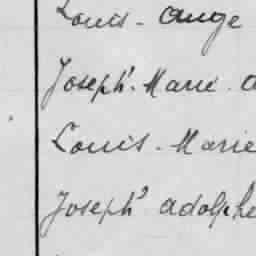 Louis - Ange
Joseph - Marie
Louis - Marie
Joseph adolphe